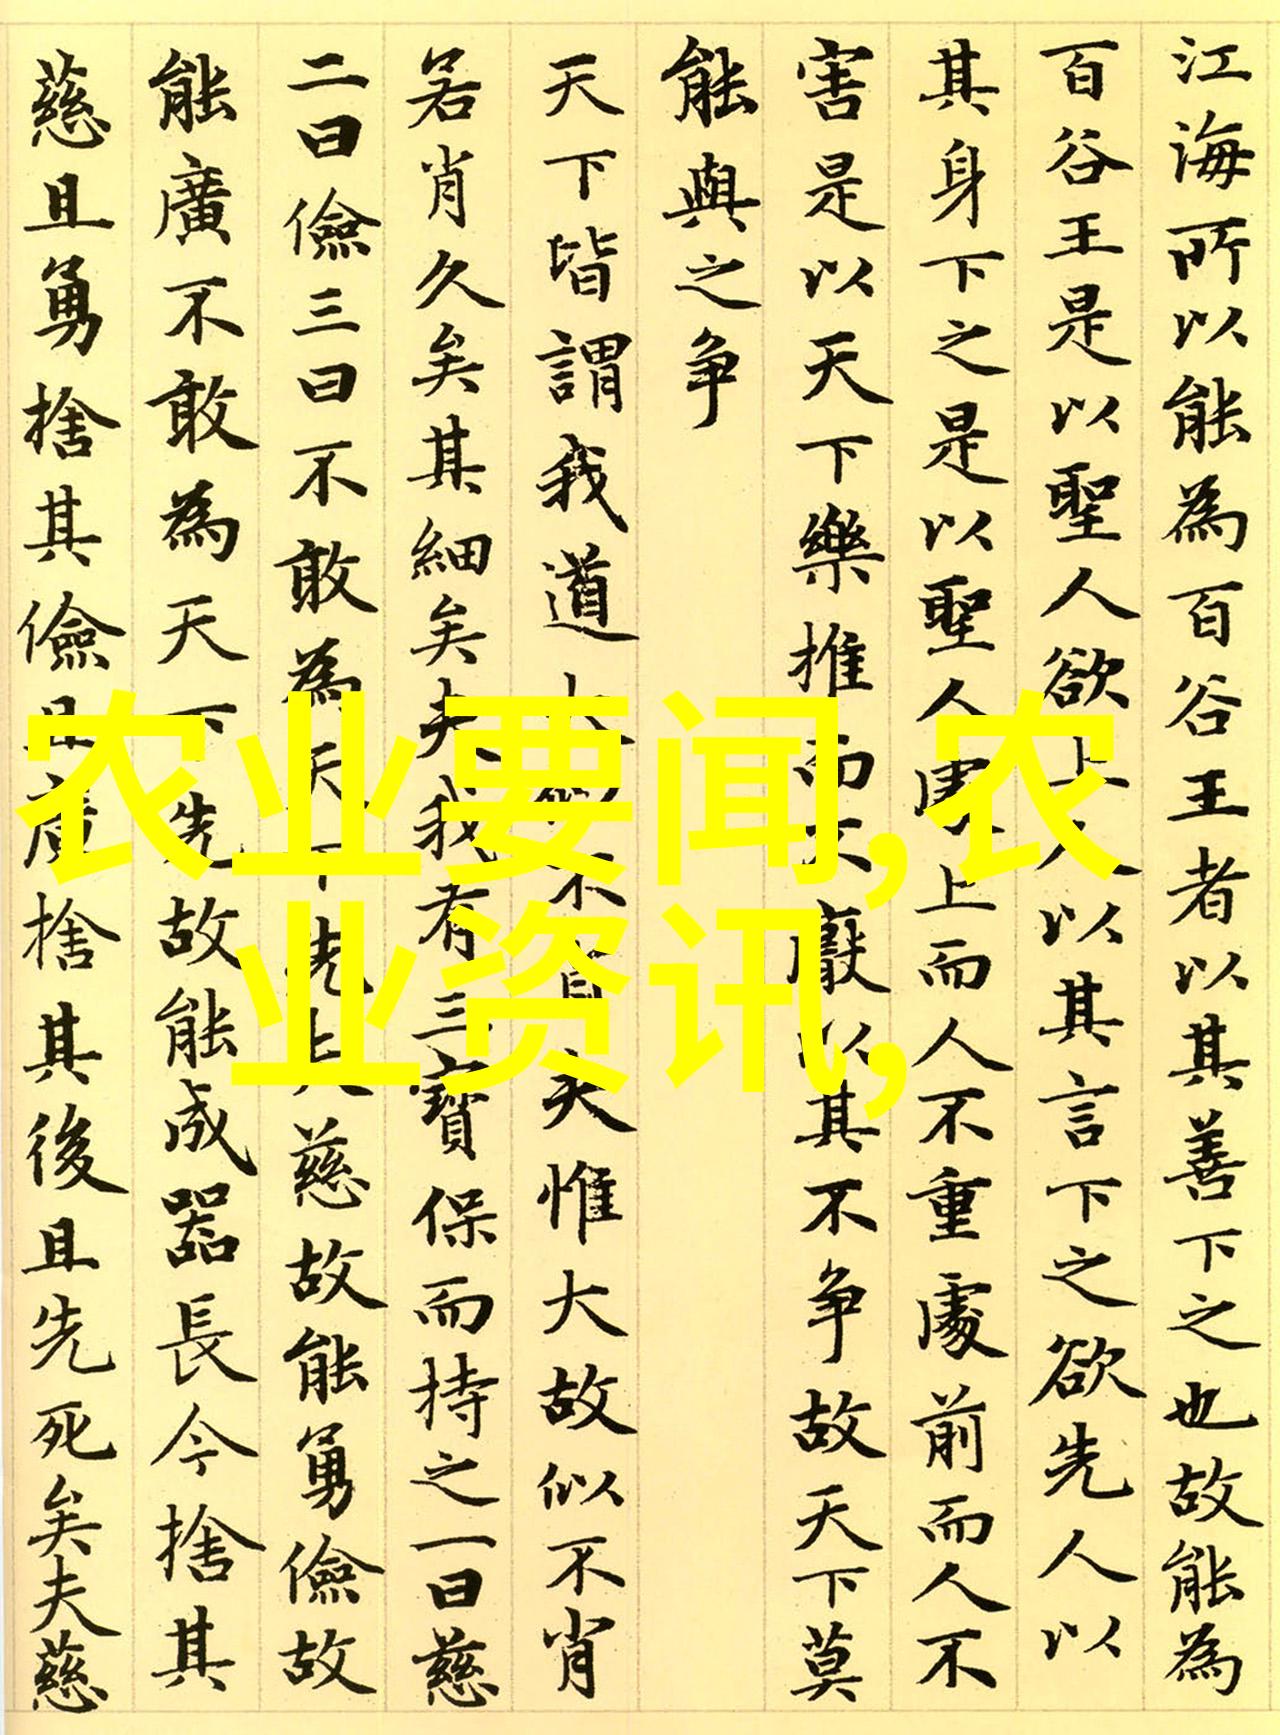 江海所以能為百谷王者以其善下之也故能為
百谷王是以聖人欲上人以其言下之欲先人以
其身下之是以聖人上而人不重處前而人不
害是以天下樂推而不厭以其不争故天下莫
能與之争
天下皆謂我道大似不肖夫惟大故似不肖
若肖久矣其細矣夫我有三寶保而持之一曰慈
二曰儉三曰不敢為天下先夫慈故能勇儉故
能廣不敢為天下先故能成器長今捨其
慈且勇捨其儉且廣捨其後且先死矣夫慈
农业要闻,农
业资讯,